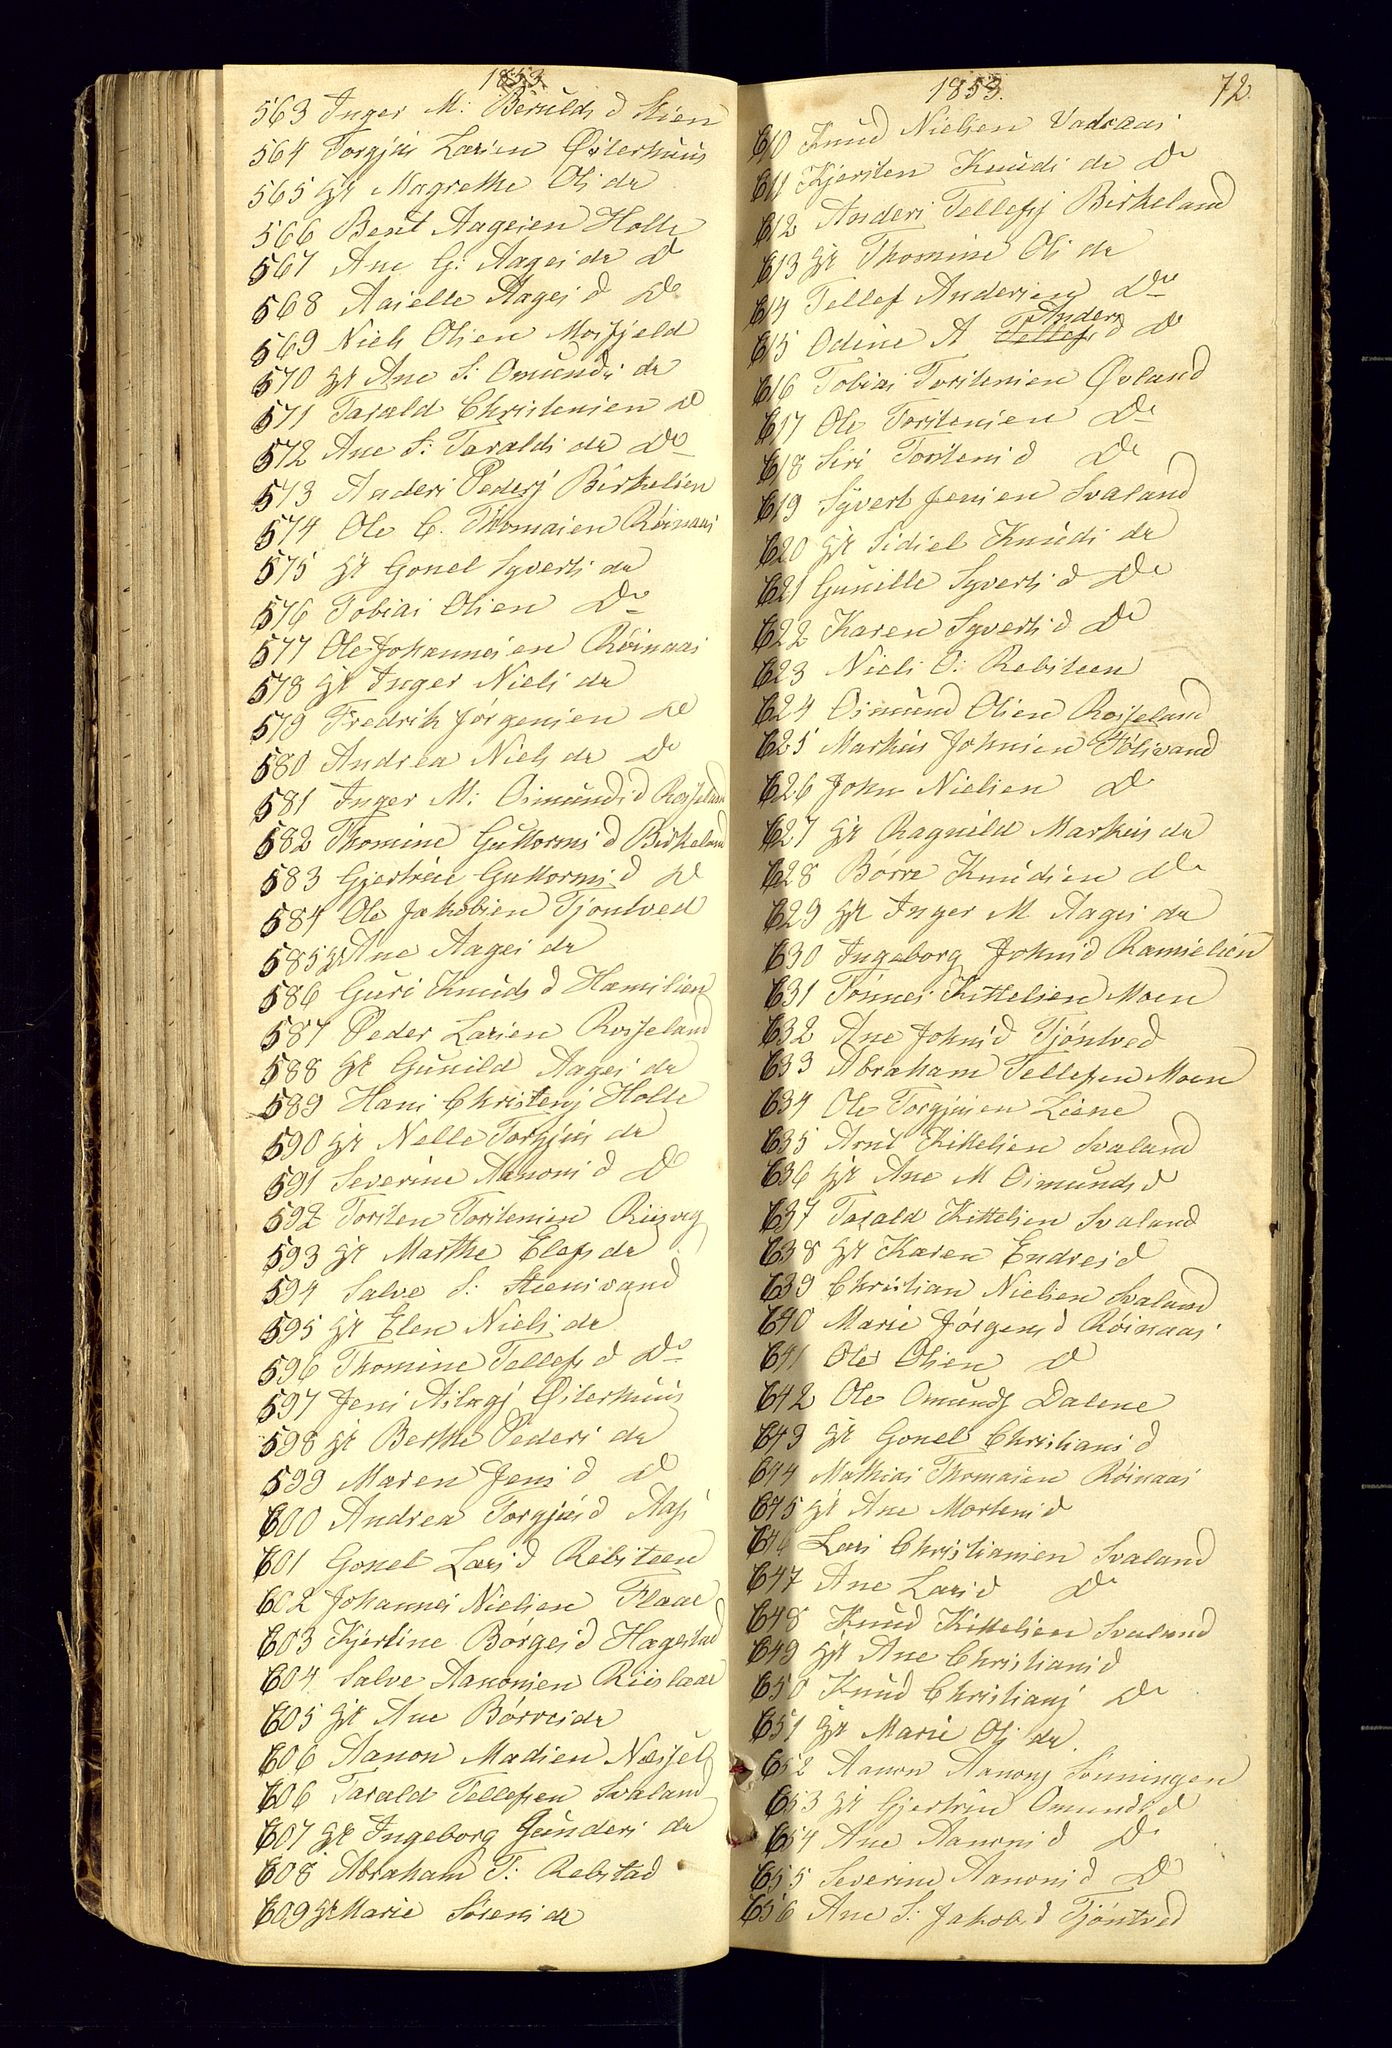 1853.
563 Inger M: Berulds d Stien
564 Torgjus Larsen Østerhuus
565 Hr Magrethe Ols dr
566 Bent Aagesen Holte
567 Ane G: Aages dr Do
568 Aaselle Aages d Do
569 Niels Olsen Mosfjeld
570 Hr Ane S: Omunds dr
571 Tarald Christensen Do
572 Ane S: Taralds dr Do
573 Anders Peders Birkelien
574 Ole C. Thomasen Røinaas
575 Hr Gonel Syverts dr
576 Tobias Olsen Do
577 Ole Johannesen Røinaas
578 Hr Inger Niels dr
579 Fredrik Jørgensen Do
580 Andrea Niels dr Do
581 Inger M: Osmunds d Rosseland
582 Thomine Guttorms d Birkeland
583 Gjertrue Guttorms d Do
584 Ole Jakobsen Tjøntved
585 Hr Ane Aages dr
586 Guri Knuds d Hæmslien
587 Peder Larsen Rosseland
588 Hr Gunild Aages dr
589 Hans Christens Holte
590 Hr Nelle Torgjus dr
591 Severine Aanons d Do
592 Torsten Torstensen Riisveg
593 Hr Marthe Elefs dr
594 Salve S: Steensvand
595 Hr Elen Niels dr
596 Thomine Tellefs d Do
597 Jens Aslags Østerhuus
598 Hr Berthe Peders dr
599 Maren Jens d Do
600 Andrea Torgjus d Aas
601 Gonel Lars d Rebsteen
602 Johannes Nielsen Flaae
603 Kjerstine Børges d Hægestad
604 Salve Aanonsen Riislaae
605 Hr Ane Børres dr
606 Aanon Madsen Næssel
606 Tarald Tellefsen Svaland
607 Hr Ingeborg Gunders dr
608 Abraham T: Rebstad
609 Hr Marie Sørens dr
1853. 72.
610 Knud Nielsen Vadsaas
611 Kjersten Knuds dr Do
612 Anders Tellefs Birkeland
613 Hr Thomine Ols dr
614 Tellef Andersen Do
615 Odine A Tellefs Anders d Do
616 Tobias Torstensen Øvland
617 Ole Torstensen Do
618 Siri Torstens d Do
619 Syvert Jensen Svaland
620 Hr Sidsel Knuds dr
621 Gunille Syverts d Do
622 Karen Syverts d Do
623 Niels O: Rebsteen
624 Osmund Olsen Rosseland
625 Markus Johnsen Følsvand
626 John Nielsen Do
627 Hr Ragnild Markus dr
628 Børre Knudsen Do
629 Hr Inger M Aages dr
630 Ingeborg Johns d Ramselien
631 Tønnes Kittelsen Moen
632 Ane Johns d Tjøntved
633 Abraham Tellefsen Moen
634 Ole Torgjusen Liene
635 Arnt Kittelsen Svaland
636 Hr Ane M Osmunds d
637 Tarald Kittelsen Svaland
638 Hr Karen Endres d
639 Christian Nielsen Svaland
640 Marie Jørgens d Røinaas
641 Ole Olsen Do
642 Ole Omunds Dalene
643 Hr Gonel Christians d
644 Mathias Thomasen Røinaas
645 Hr Ane Mortens d
646 Lars Christiansen Svaland
647 Ane Lars d Do
648 Knud Kittelsen Svaland
649 Hr Ane Christians d
650 Knud Christians Do
651 Hr Marie Ols dr
652 Aanon Aanons Sønningen
653 Hr Gjertrue Omunds d
654 Ane Aanons d Do
655 Severine Aanons d Do
656 Ane S: Jakobs d Tjøntved